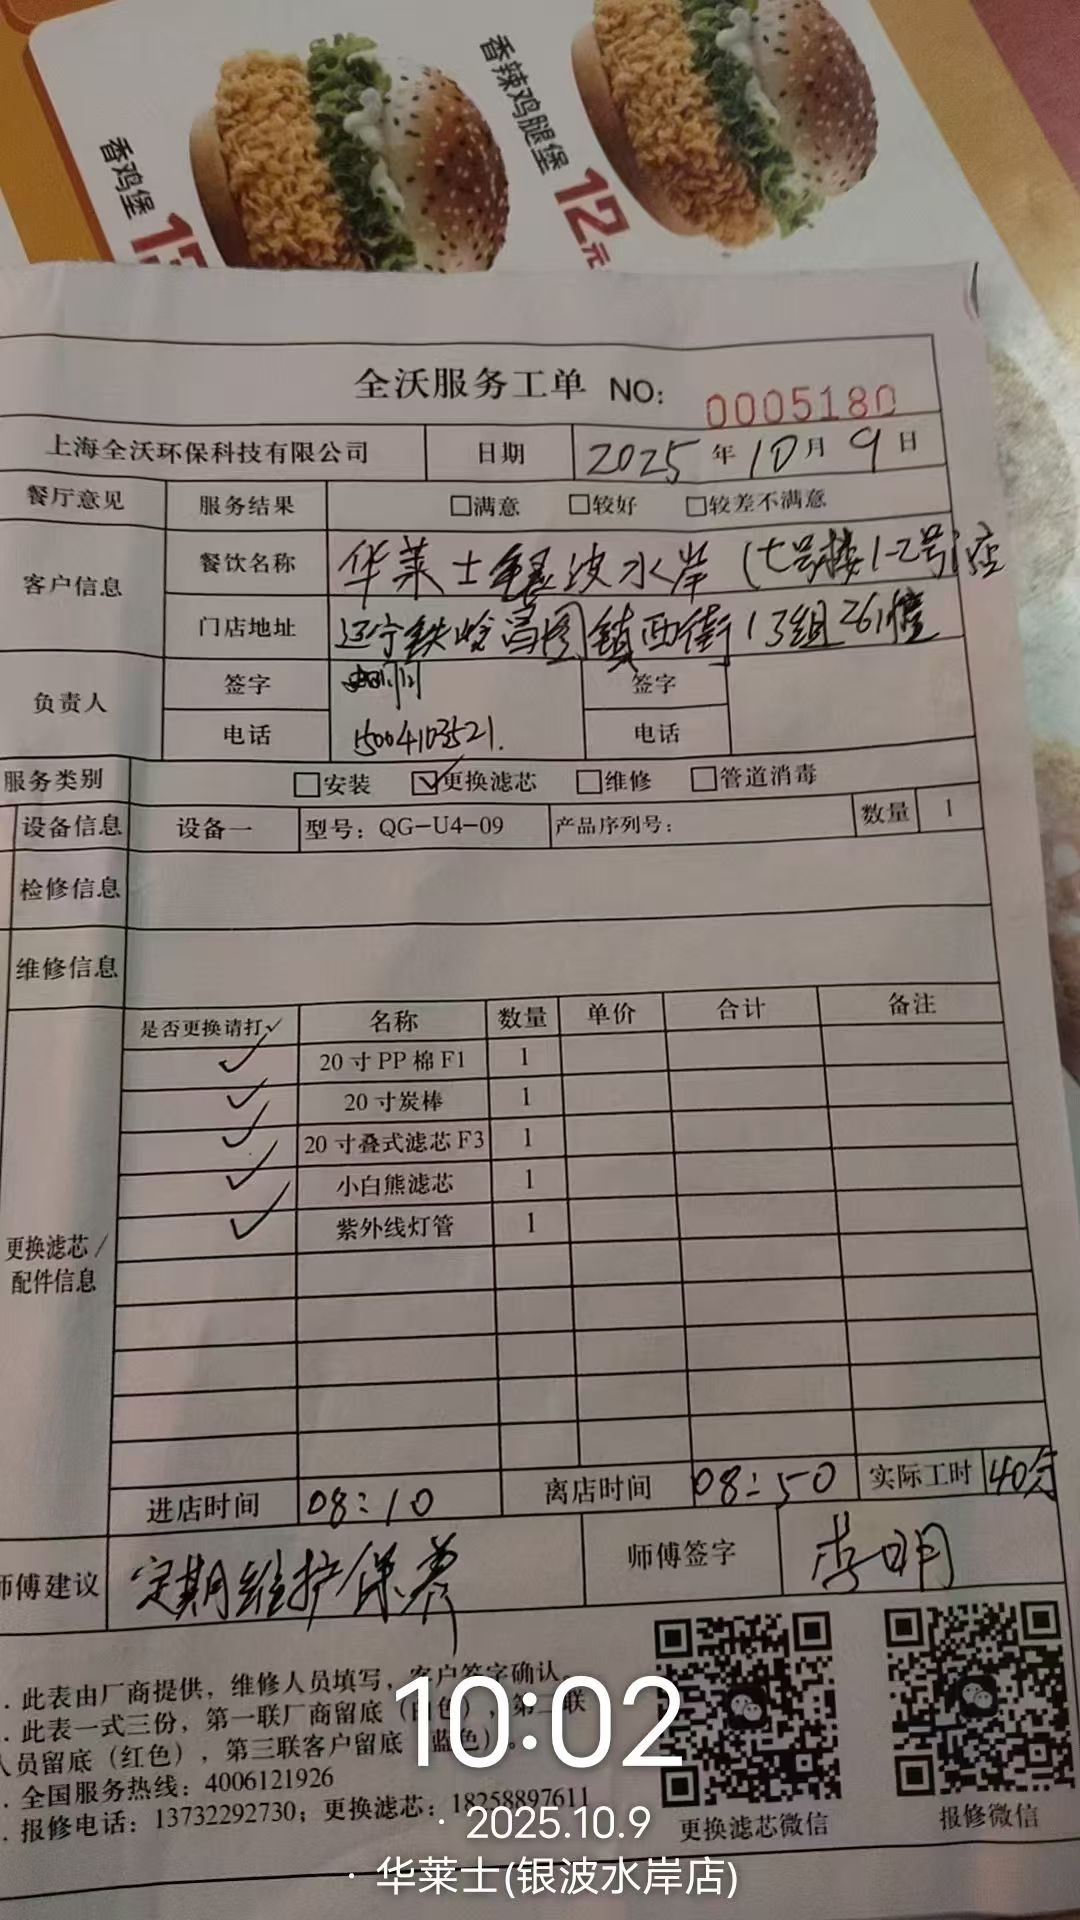 香鸡堡
香辣鸡腿堡
12元
全沃服务工单 NO: 0005180
上海全沃环保科技有限公司 日期 2025年10月9日
餐厅意见 服务结果 □满意 □较好 □较差不满意
客户信息 餐饮名称 华莱士银波水岸(七号楼1-2号)店
门店地址 辽宁铁岭昌图镇西街13组261幢
负责人 签字 签字
电话 15004103521. 电话
服务类别 □安装 ☑更换滤芯 □维修 □管道消毒
设备信息 设备一 型号: QG-U4-09 产品序列号: 数量 1
检修信息
维修信息
是否更换请打✓ 名称 数量 单价 合计 备注
✓ 20寸PP棉F1 1
✓ 20寸炭棒 1
✓ 20寸叠式滤芯F3 1
✓ 小白熊滤芯 1
✓ 紫外线灯管 1
更换滤芯/
配件信息
进店时间 08:10 离店时间 08:50 实际工时 40分
师傅建议 定期维护保养 师傅签字 李明
. 此表由厂商提供，维修人员填写，客户签字确认。
. 此表一式三份，第一联厂商留底（白色），第二联
人员留底（红色），第三联客户留底（蓝色）。
. 全国服务热线：4006121926
. 报修电话：13732292730；更换滤芯：18258897611
更换滤芯微信 报修微信
10:02
· 2025.10.9
· 华莱士(银波水岸店)